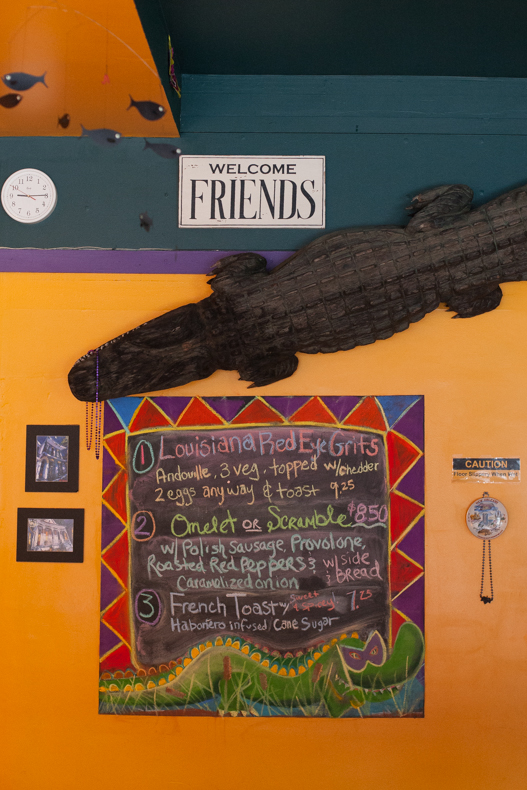 WELCOME
FRIENDS
1 Louisiana Red Eye Grits
Andouille, 3 veg, topped w/chedder
2 eggs any way & toast 9.25
2 Omelet OR Scramble $8.50
w/ Polish Sausage, Provolone,
Roasted Red Peppers & w/side
Caramelized onion & Bread
3 French Toast Sweet & Spicey! 7.25
Habañero infused/Cane Sugar
CAUTION
Floor Slippery When Wet